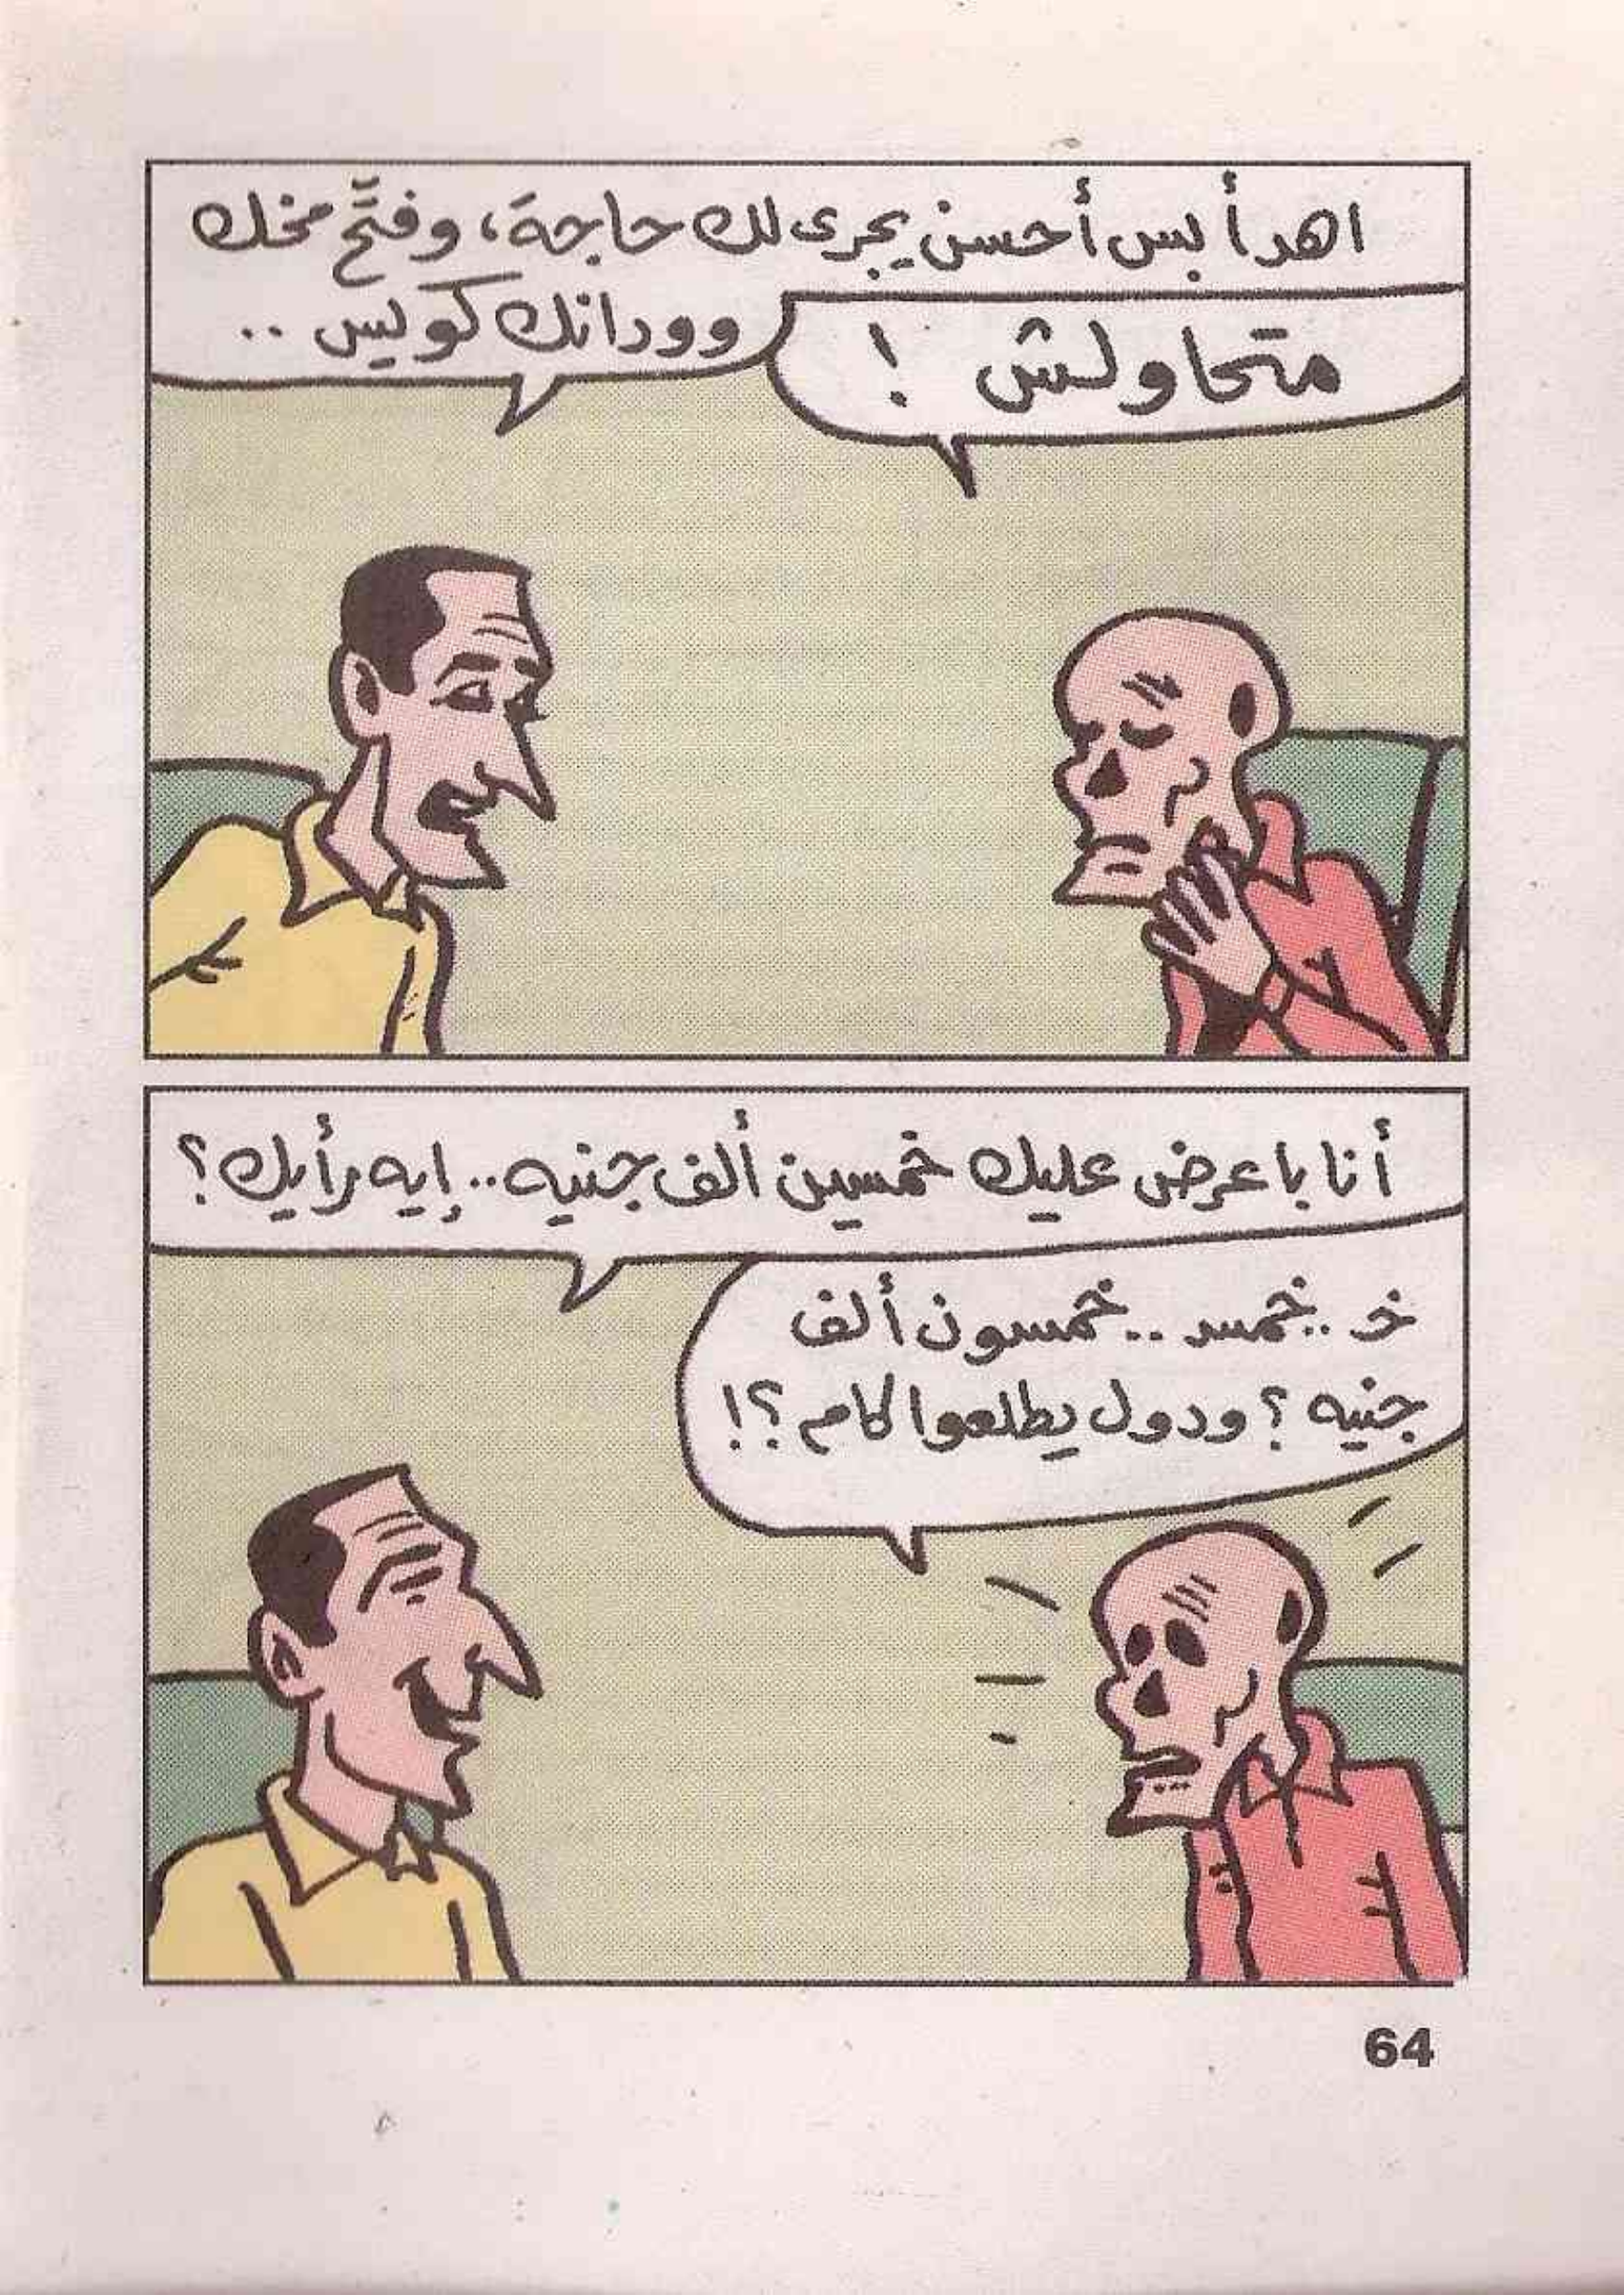 اهدأ بس أحسن يجرى لك حاجة، وفتَّح مخك
وودانك كويس ..
متحاولش !
أنا باعرض عليك خمسين ألف جنيه.. إيه رأيك؟
خـ .. خمسـ .. خمسون ألف
جنيه ؟ ودول يطلعوا كام ؟!
64